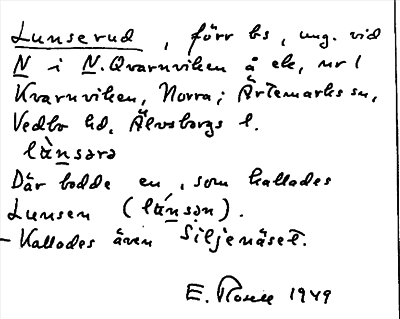 Lunserud, förr bs, ung. vid
N i N. Qvarnviken å ek, nr 1
Kvarnviken, Norra; Ärtemarks sn,
Vedbo hd, Älvsborgs l.
lùnsərə
Där bodde en, som kallades
Lunsen (lúnsən).
- Kallades även Siljenäset.
E. 1949